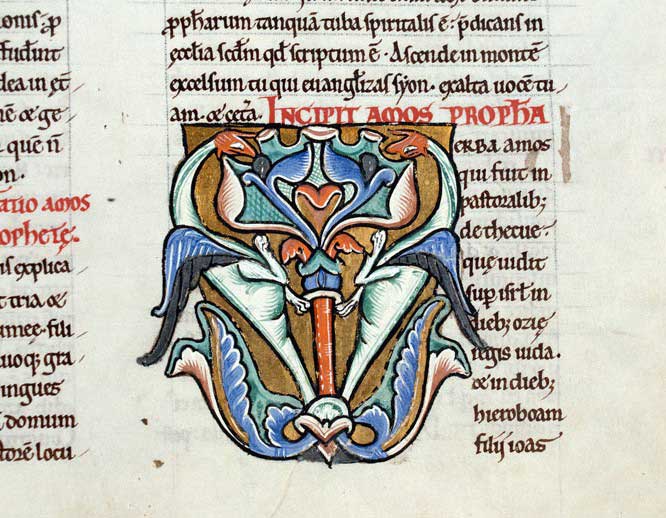 ionis: p̄
ffudint
dea in
& ge
que n̄
on.
atio amos
ophetę.
is explica
t tria &
umee. fili
uoq; gra
ingues
domum
torē locu
ꝓpħarum tanquā tuba spiritalis ē: p̄dicans in
eccłia scdm̄ qd̄ scriptum ē. Ascende in montē
excelsum tu qui euangłizas syon. exalta uocē tu
am. & cet̄a. INCIPIT AMOS PROPHA
VERBA amos
qui fuit in
pastoralib;
de thecue.
quę uidit
sup isrł in
dieb; ozię
regis iuda.
& in dieb;
hieroboam
filij ioas